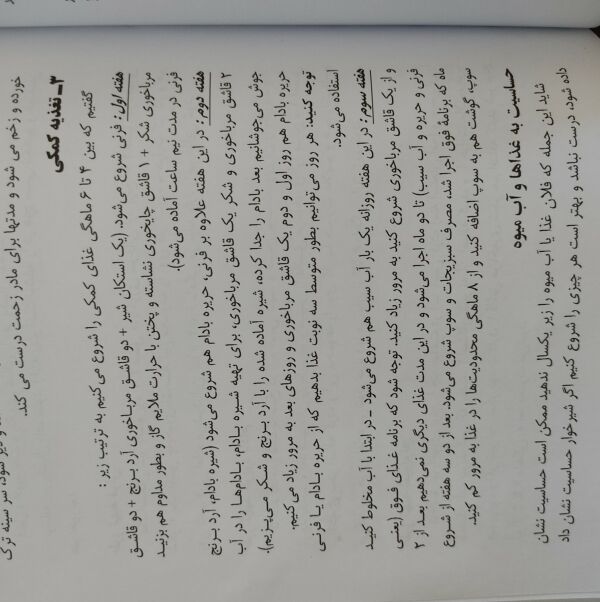 خورده و زخم می شود و مدتها برای مادر زحمت درست می کند.
۳ـ تغذیه کمکی
گفتیم که بین ۴ تا ۶ ماهگی غذای کمکی را شروع می‌کنیم به ترتیب زیر :
هفته اول: فرنی شروع می‌شود. (یک استکان شیر + دو قاشق مرباخوری آرد برنج + دو قاشق
مرباخوری شکر + ۱ قاشق چایخوری نشاسته و پختن با حرارت ملایم گاز و بطور مداوم هم بزنید
فرنی در مدت نیم ساعت آماده می‌شود).
هفته دوم: در این هفته علاوه بر فرنی، حریره بادام هم شروع می‌شود (شیره بادام، آرد برنج
۲ قاشق مرباخوری و شکر یک قاشق مرباخوری، برای تهیه شیره بادام، بادام‌ها را در آب
جوش می‌جوشانیم بعد بادام را جدا کرده، شیره آماده شده را با آرد برنج و شکر می‌پزیم).
حریره بادام هم روز اول و دوم یک قاشق مرباخوری و روزهای بعد به مرور زیاد می‌کنیم.
توجه کنید: هر روز می‌توانیم بطور متوسط سه نوبت غذا بدهیم که از حریره بادام یا فرنی
استفاده می‌شود.
هفته سوم: در این هفته روزانه یک بار آب سیب هم شروع می‌شود ـ در ابتدا با آب مخلوط کنید
و از یک قاشق مرباخوری شروع کنید به مرور زیاد کنید. توجه شود که برنامه غذای فوق (یعنی
فرنی و حریره و آب سیب) تا دو ماه اجرا می‌شود و در این مدت غذای دیگری نمی‌دهیم بعد از ۲
ماه که برنامهٔ فوق اجرا شد، مصرف سبزیجات و سوپ شروع می‌شود. بعد از دو سه هفته از شروع
سوپ، گوشت هم به سوپ اضافه کنید و از ۸ ماهگی محدودیت‌ها را در غذا به مرور کم کنید.
حساسیت به غذاها و آب میوه
شاید این جمله که فلان غذا یا آب میوه را زیر یکسال ندهید ممکن است حساسیت نشان
داده شود، درست نباشد و بهتر است هر چیزی را شروع کنیم اگر شیرخوار حساسیت نشان داد